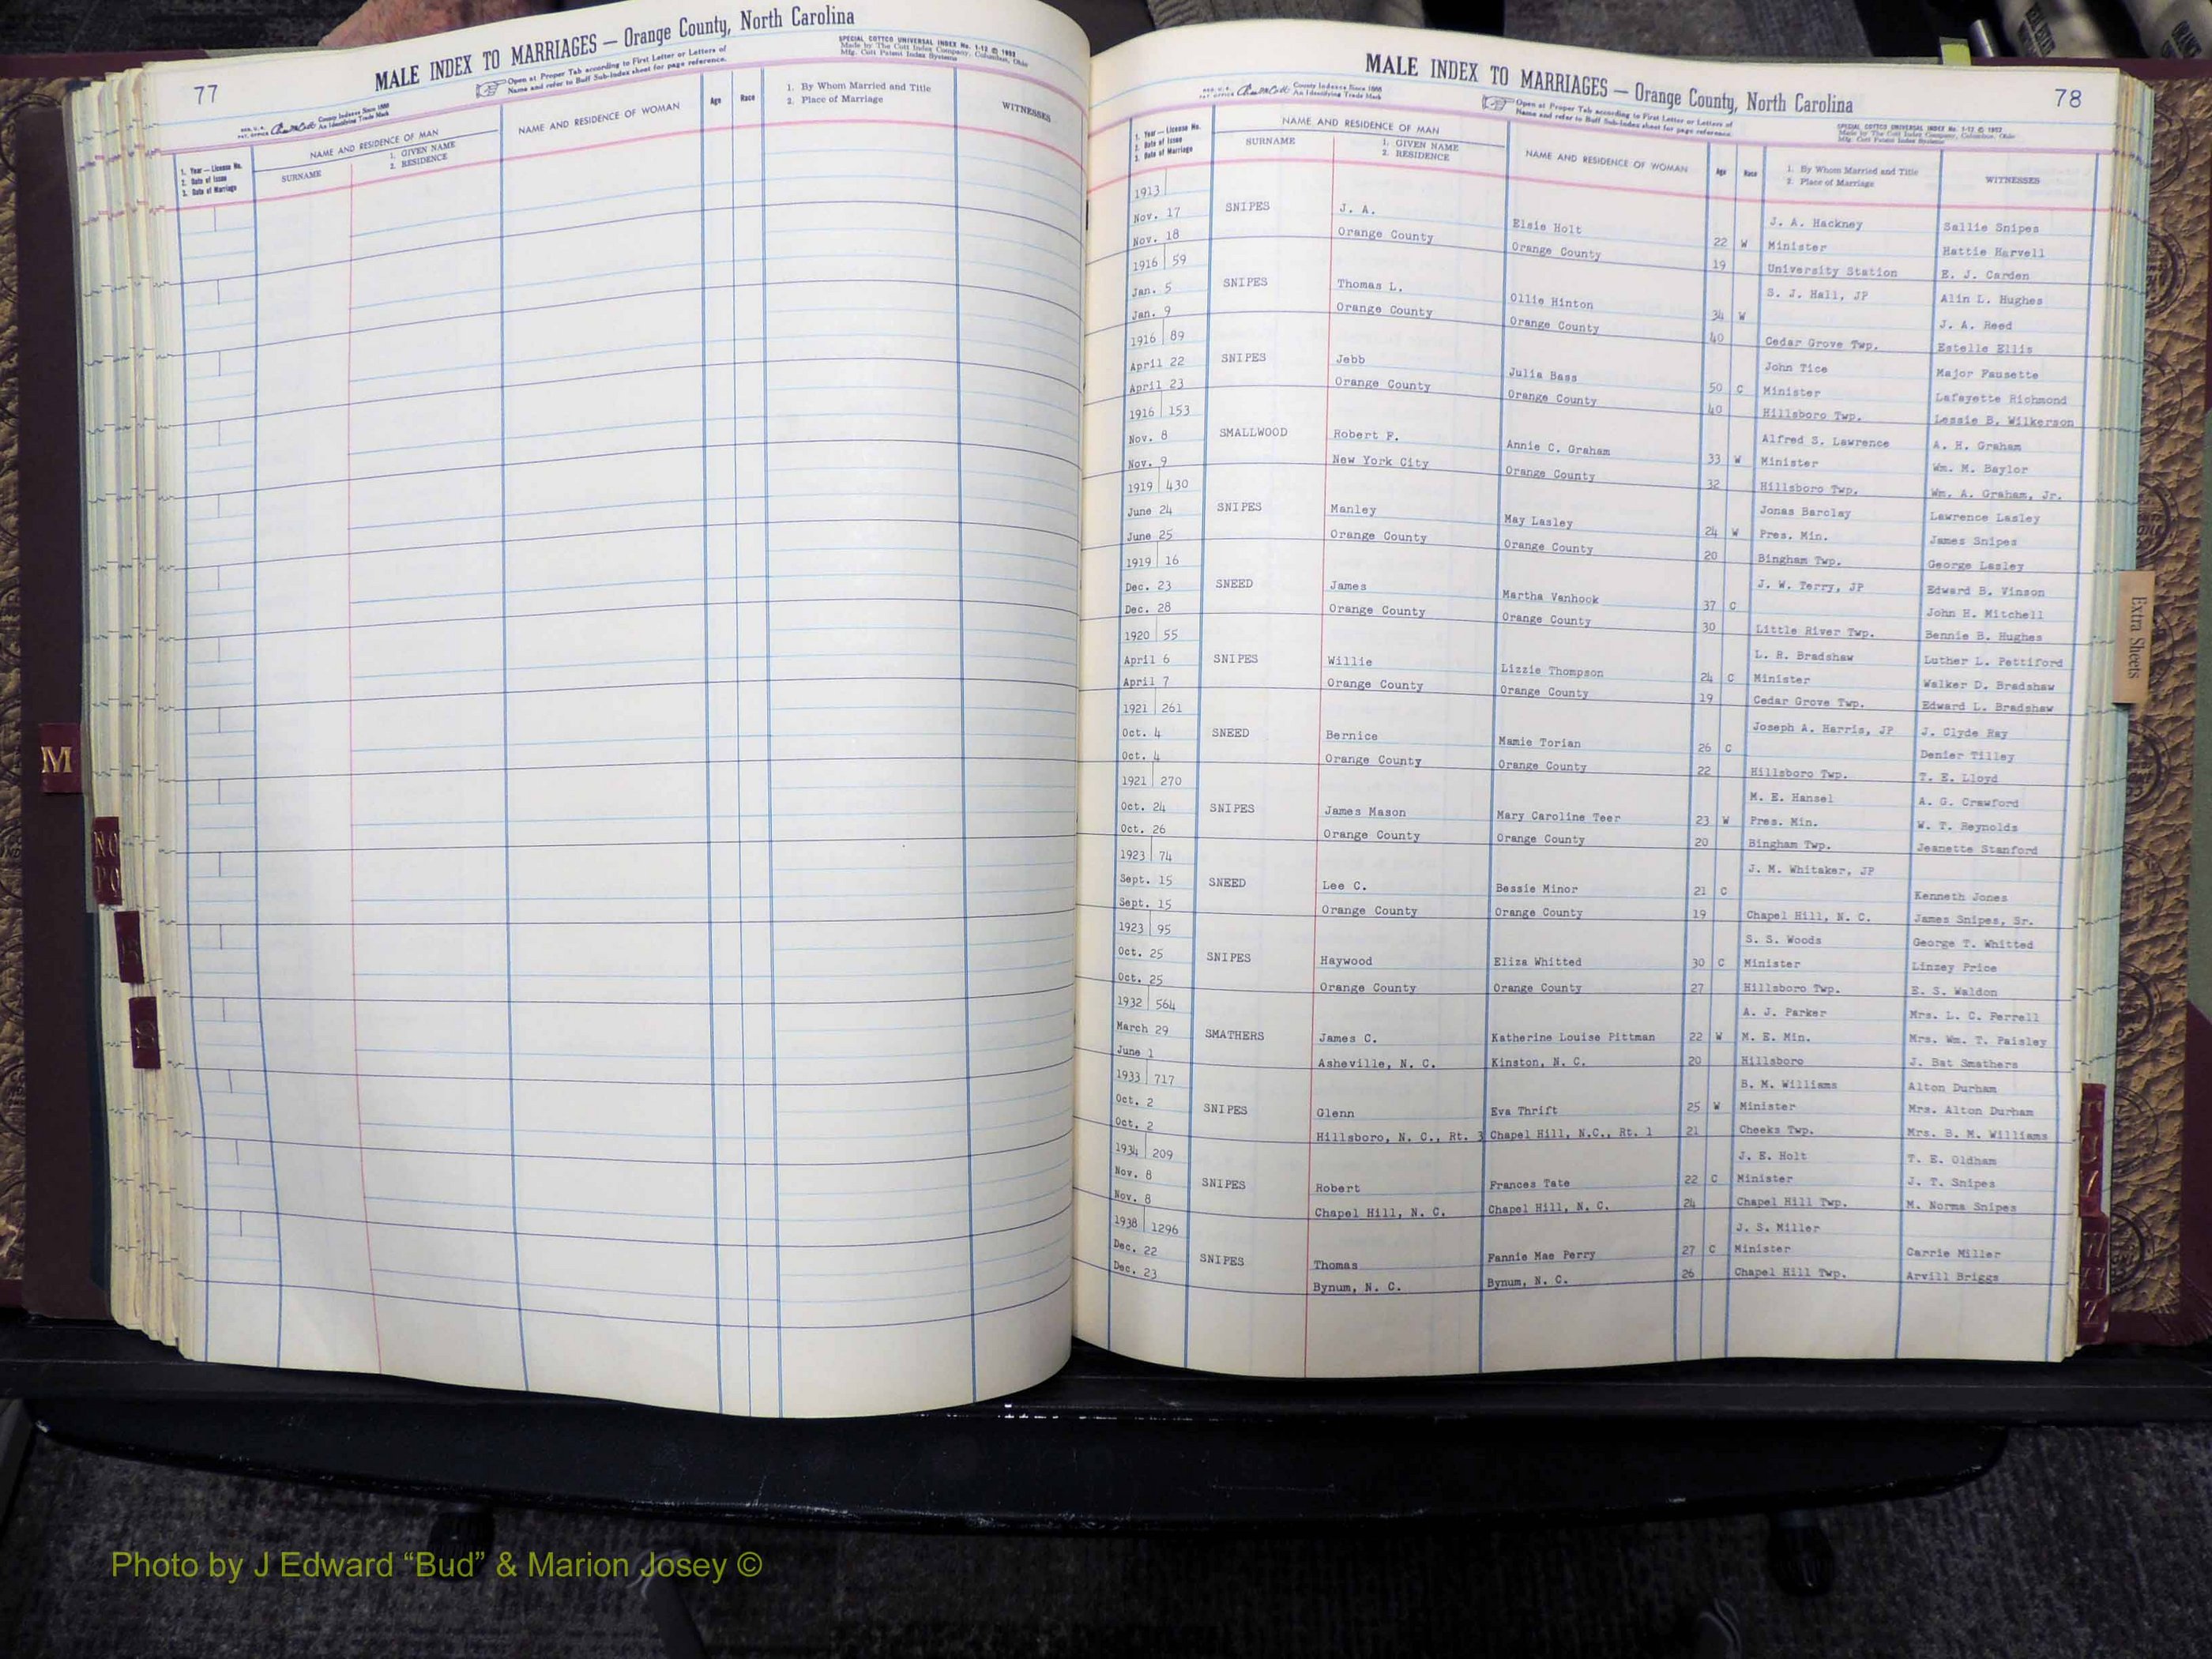 77
MALE INDEX TO MARRIAGES — Orange County, North Carolina
Open at Proper Tab according to First Letter or Letters of
Name and refer to Buff Sub-Index sheet for page reference.
SPECIAL COTTCO UNIVERSAL INDEX No. 1-12 ©
Made by The Cott Index Company, Columbus, Ohio
Mfg. Cott Patent Index Systems
County Indexes Since 1888
An Identifying Trade Mark
1. Year — License No.
2. Date of Issue
3. Date of Marriage
NAME AND RESIDENCE OF MAN
SURNAME
1. GIVEN NAME
2. RESIDENCE
NAME AND RESIDENCE OF WOMAN
Age
Race
1. By Whom Married and Title
2. Place of Marriage
WITNESSES
MALE INDEX TO MARRIAGES — Orange County, North Carolina
78
County Indexes Since 1888
An Identifying Trade Mark
Open at Proper Tab according to First Letter or Letters of
Name and refer to Buff Sub-Index sheet for page reference.
SPECIAL COTTCO UNIVERSAL INDEX No. 1-12 ©
Made by The Cott Index Company, Columbus, Ohio
Mfg. Cott Patent Index Systems
1. Year — License No.
2. Date of Issue
3. Date of Marriage
NAME AND RESIDENCE OF MAN
SURNAME
1. GIVEN NAME
2. RESIDENCE
NAME AND RESIDENCE OF WOMAN
Age
Race
1. By Whom Married and Title
2. Place of Marriage
WITNESSES
1913 J. A. Hackney Sallie Snipes
Nov. 17 SNIPES J. A. Elsie Holt 22 W Minister Hattie Harvell
Nov. 18 Orange County Orange County 19 University Station E. J. Carden
1916 59 S. J. Hall, JP Alin L. Hughes
Jan. 5 SNIPES Thomas L. Ollie Hinton 34 W J. A. Reed
Jan. 9 Orange County Orange County 40 Cedar Grove Twp. Estelle Ellis
1916 89 John Tice Major Fausette
April 22 SNIPES Jebb Julia Bass 50 C Minister Lafayette Richmond
April 23 Orange County Orange County 40 Hillsboro Twp. Lessie B. Wilkerson
1916 153 Alfred S. Lawrence A. H. Graham
Nov. 8 SMALLWOOD Robert F. Annie C. Graham 33 W Minister Wm. M. Baylor
Nov. 9 New York City Orange County 32 Hillsboro Twp. Wm. A. Graham, Jr.
1919 430 Jonas Barclay Lawrence Lasley
June 24 SNIPES Manley May Lasley 24 W Pres. Min. James Snipes
June 25 Orange County Orange County 20 Bingham Twp. George Lasley
1919 16 J. W. Terry, JP Edward B. Vinson
Dec. 23 SNEED James Martha Vanhook 37 C John H. Mitchell
Dec. 28 Orange County Orange County 30 Little River Twp. Bennie B. Hughes
1920 55 L. R. Bradshaw Luther L. Pettiford
April 6 SNIPES Willie Lizzie Thompson 24 C Minister Walker D. Bradshaw
April 7 Orange County Orange County 19 Cedar Grove Twp. Edward L. Bradshaw
1921 261 Joseph A. Harris, JP J. Clyde Ray
Oct. 4 SNEED Bernice Mamie Torian 26 C Denier Tilley
Oct. 4 Orange County Orange County 22 Hillsboro Twp. T. E. Lloyd
1921 270 M. E. Hansel A. G. Crawford
Oct. 24 SNIPES James Mason Mary Caroline Teer 23 W Pres. Min. W. T. Reynolds
Oct. 26 Orange County Orange County 20 Bingham Twp. Jeanette Stanford
1923 74 J. M. Whitaker, JP
Sept. 15 SNEED Lee C. Bessie Minor 21 C Kenneth Jones
Sept. 15 Orange County Orange County 19 Chapel Hill, N. C. James Snipes, Sr.
1923 95 S. S. Woods George T. Whitted
Oct. 25 SNIPES Haywood Eliza Whitted 30 C Minister Linzey Price
Oct. 25 Orange County Orange County 27 Hillsboro Twp. E. S. Waldon
1932 564 A. J. Parker Mrs. L. C. Ferrell
March 29 SMATHERS James C. Katherine Louise Pittman 22 W M. E. Min. Mrs. Wm. T. Paisley
June 1 Asheville, N. C. Kinston, N. C. 20 Hillsboro J. Bat Smathers
1933 717 B. M. Williams Alton Durham
Oct. 2 SNIPES Glenn Eva Thrift 25 W Minister Mrs. Alton Durham
Oct. 2 Hillsboro, N. C., Rt. 3 Chapel Hill, N.C., Rt. 1 21 Cheeks Twp. Mrs. B. M. Williams
1934 209 J. E. Holt T. E. Oldham
Nov. 8 SNIPES Robert Frances Tate 22 C Minister J. T. Snipes
Nov. 8 Chapel Hill, N. C. Chapel Hill, N. C. 24 Chapel Hill Twp. M. Norma Snipes
1938 1296 J. S. Miller
Dec. 22 SNIPES Thomas Fannie Mae Perry 27 C Minister Carrie Miller
Dec. 23 Bynum, N. C. Bynum, N. C. 26 Chapel Hill Twp. Arvill Briggs
M
NO
PQ
Extra Sheets
Photo by J Edward “Bud” & Marion Josey ©